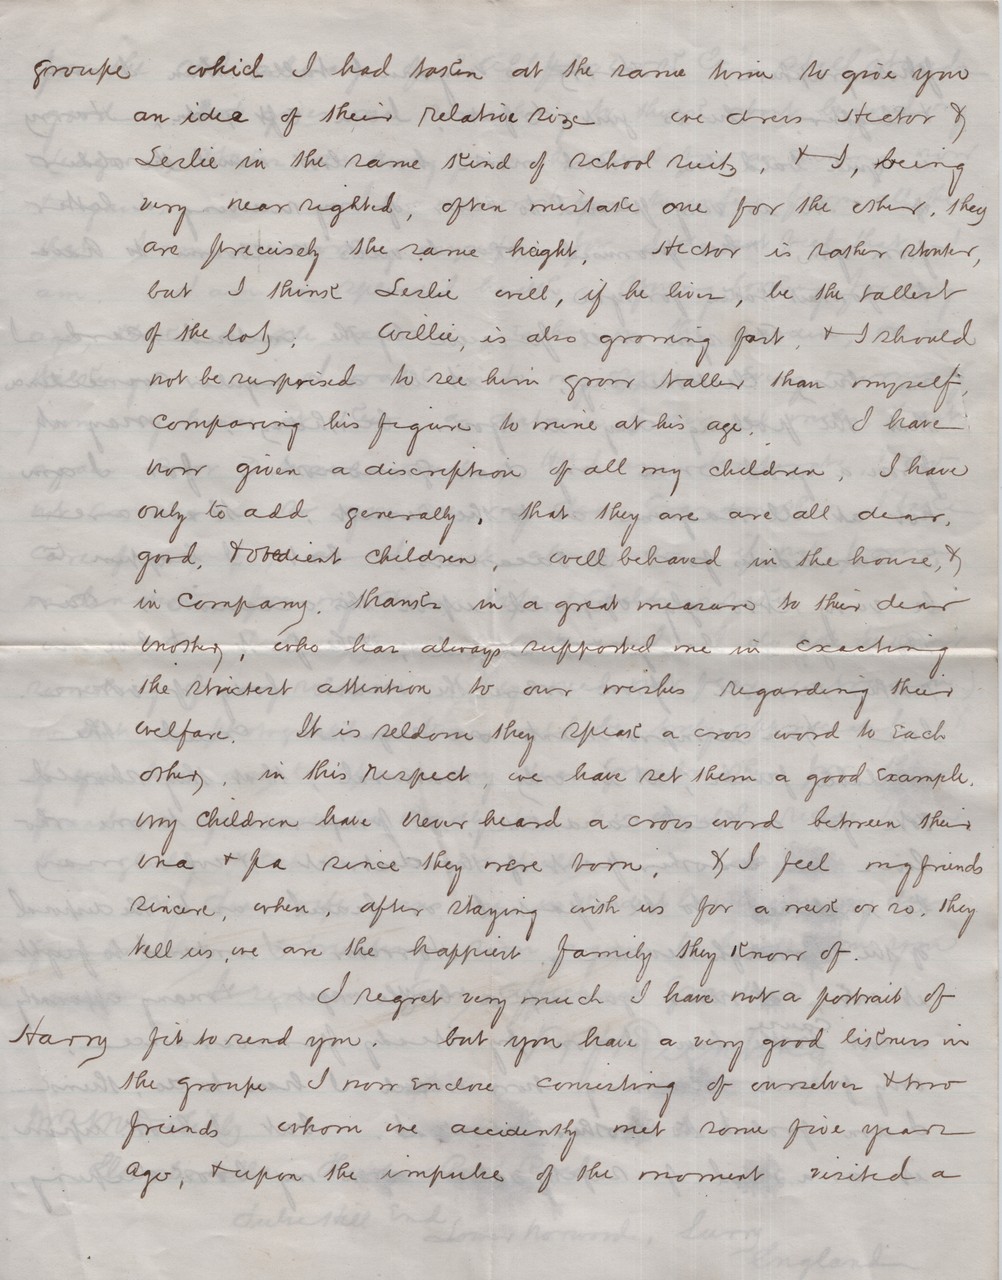 groupe which I had taken at the same time to give you
an idea of their relative size we dress Hector &
Leslie in the same kind of school suits, & I, being
very near sighted, often mistake one for the other, they
are precisely the same height, Hector is rather stouter,
but I think Leslie will, if he lives, be the tallest
of the lot, Willie, is also growing fast, & I should
not be surprised to see him grow taller than myself,
comparing his figure to mine at his age. I have
now given a discription of all my children, I have
only to add generally, that they are are all dear,
good, & obedient children, well behaved in the house, &
in company, thanks in a great measure to their dear
mother, who has always supported me in exacting
the strictest attention to our wishes regarding their
welfare. It is seldom they speak a cross word to each
other, in this respect, we have set them a good example.
my children have never heard a cross word between their
ma & pa since they were born, & I feel my friends
sincere, when, after staying with us for a week or so, they
tell us, we are the happiest family they know of.
I regret very much I have not a portrait of
Harry fit to send you. but you have a very good likeness in
the groupe I now enclose consisting of ourselves & two
friends whom we accidently met some five years
ago, & upon the impulse of the moment visited a
Surry
England